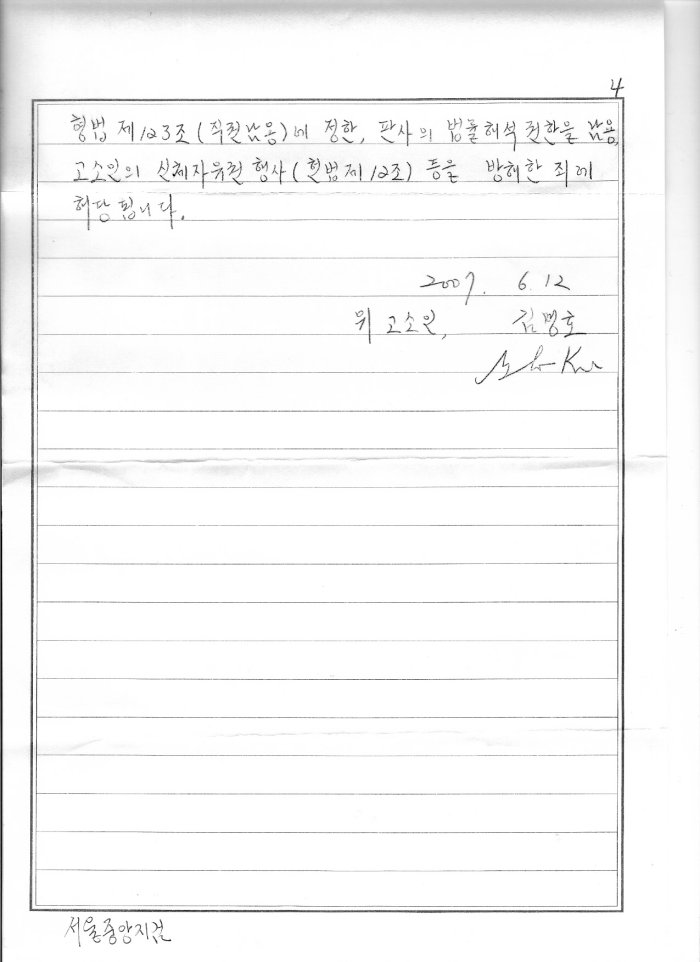 4
형법 제123조(직권남용)에 정한, 판사의 법률해석권한을 남용,
고소인의 신체자유권 행사(헌법제12조) 등을 방해한 죄에
해당됩니다.
2007. 6. 12
위 고소인, 김명호
서울중앙지검